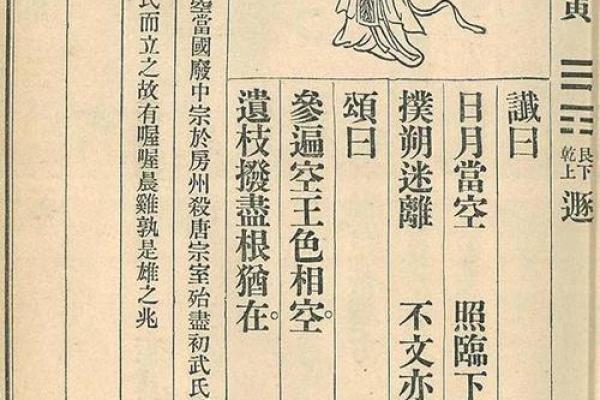 寅
艮下
乾上
遯
讖曰
日月當空 照臨下
撲朔迷離 不文亦
頌曰
參遍空王色相空。
遺枝撥盡根猶在。
當國廢中宗於房州殺唐宗室殆盡初武氏
氏而立之故有喔喔晨雞孰是雄之兆